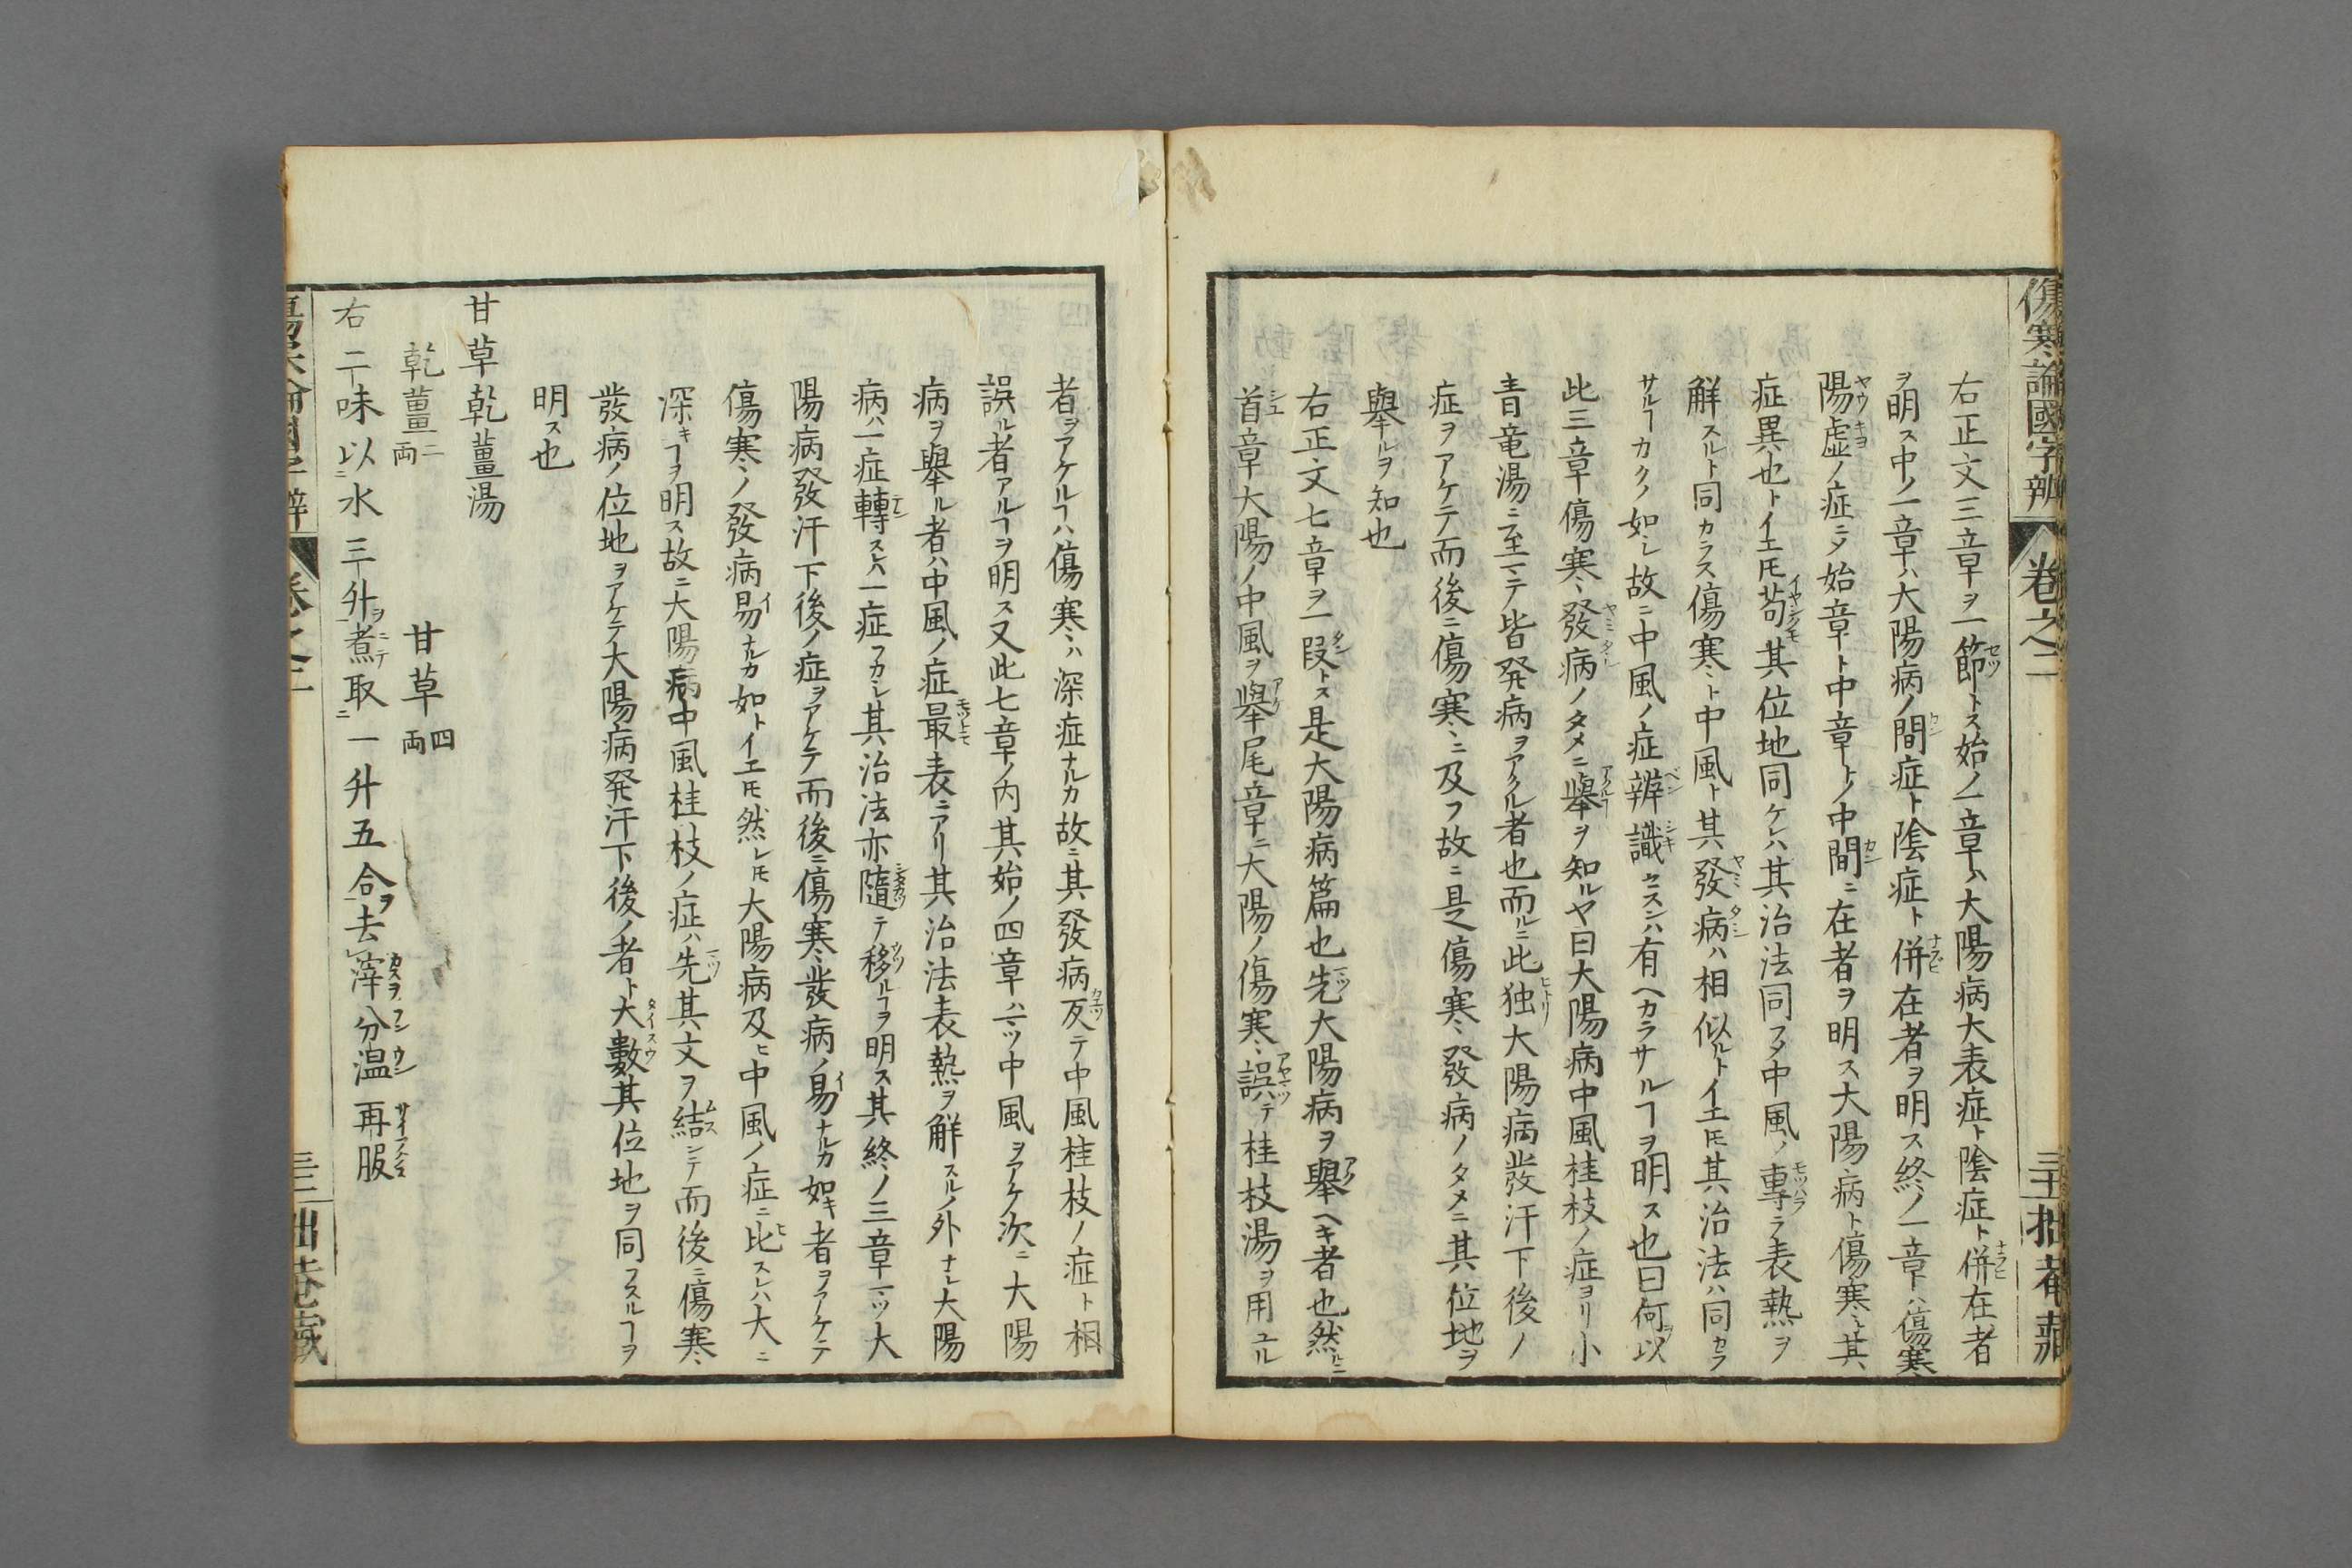 傷寒論國字辨 卷之二 拙菴藏
右正文三章ヲ一節トス始ノ一章ハ大陽病大表症ト陰症ト併在者
ヲ明ス中ノ一章ハ大陽病ノ間症ト陰症ト併在者ヲ明ス終ノ一章ハ傷寒
陽虚ノ症ニメ始章ト中章トノ中間ニ在者ヲ明ス大陽病ト傷寒ト其
症異也トイエ𪜈苟其位地同ケレハ其治法同フメ中風ノ專ラ表熱ヲ
解スルト同カラス傷寒ト中風ト其發病ハ相似ルトイエ𪜈其治法ハ同カラ
サルヿカクノ如シ故ニ中風ノ症辨識セスンハ有ヘカラサルヿヲ明ス也曰何以
此三章傷寒發病ノタメニ擧ヲ知ルヤ曰大陽病中風桂枝ノ症ヨリ小
青竜湯ニ至マテ皆発病ヲアクル者也而ルニ此独大陽病發汗下後ノ
症ヲアケテ而後ニ傷寒ニ及フ故ニ是傷寒發病ノタメニ其位地ヲ
擧ルヲ知也
右正文七章ヲ一段トス是大陽病篇也先大陽病ヲ擧ヘキ者也然ルニ
首章大陽ノ中風ヲ擧尾章ニ大陽ノ傷寒誤テ桂枝湯ヲ用ユル
者ヲアケルヿハ傷寒ハ深症ナルカ故ニ其發病反テ中風桂枝ノ症ト相
誤ル者アルヿヲ明ス又此七章ノ内其始ノ四章ハ一ツ中風ヲアケ次ニ大陽
病ヲ擧ル者ハ中風ノ症最表ニアリ其治法表熱ヲ解スルノ外ナレ大陽
病ハ一症轉スレハ一症フカシ其治法亦隨テ移ルヿヲ明ス其終ノ三章一ツ大
陽病發汗下後ノ症ヲアケテ而後ニ傷寒發病ノ易ナルカ如キ者ヲアケテ
傷寒ノ發病易ナルカ如トイエ𪜈然レ𪜈大陽病及ヒ中風ノ症ニ比スレハ大ニ
深キヿヲ明ス故ニ大陽病中風桂枝ノ症ハ先其文ヲ結ンテ而後ニ傷寒
發病ノ位地ヲアケテ大陽病発汗下後ノ者ト大數其位地ヲ同フスルヿヲ
明ス也
甘草乾薑湯
甘草四両
乾薑二両
右二味以水三升煮取一升五合去滓分温再服
卷之二 拙菴藏